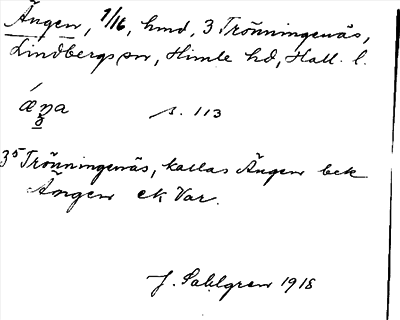 Ängen, 1/16, hmd, 3 Trönningenäs,
Lindbergs sn, Himle hd, Hall. l.
s. 113
3⁵ Trönningenäs, kallas Ängen bek
Ängen ek Var.
J. Sahlgren 1918